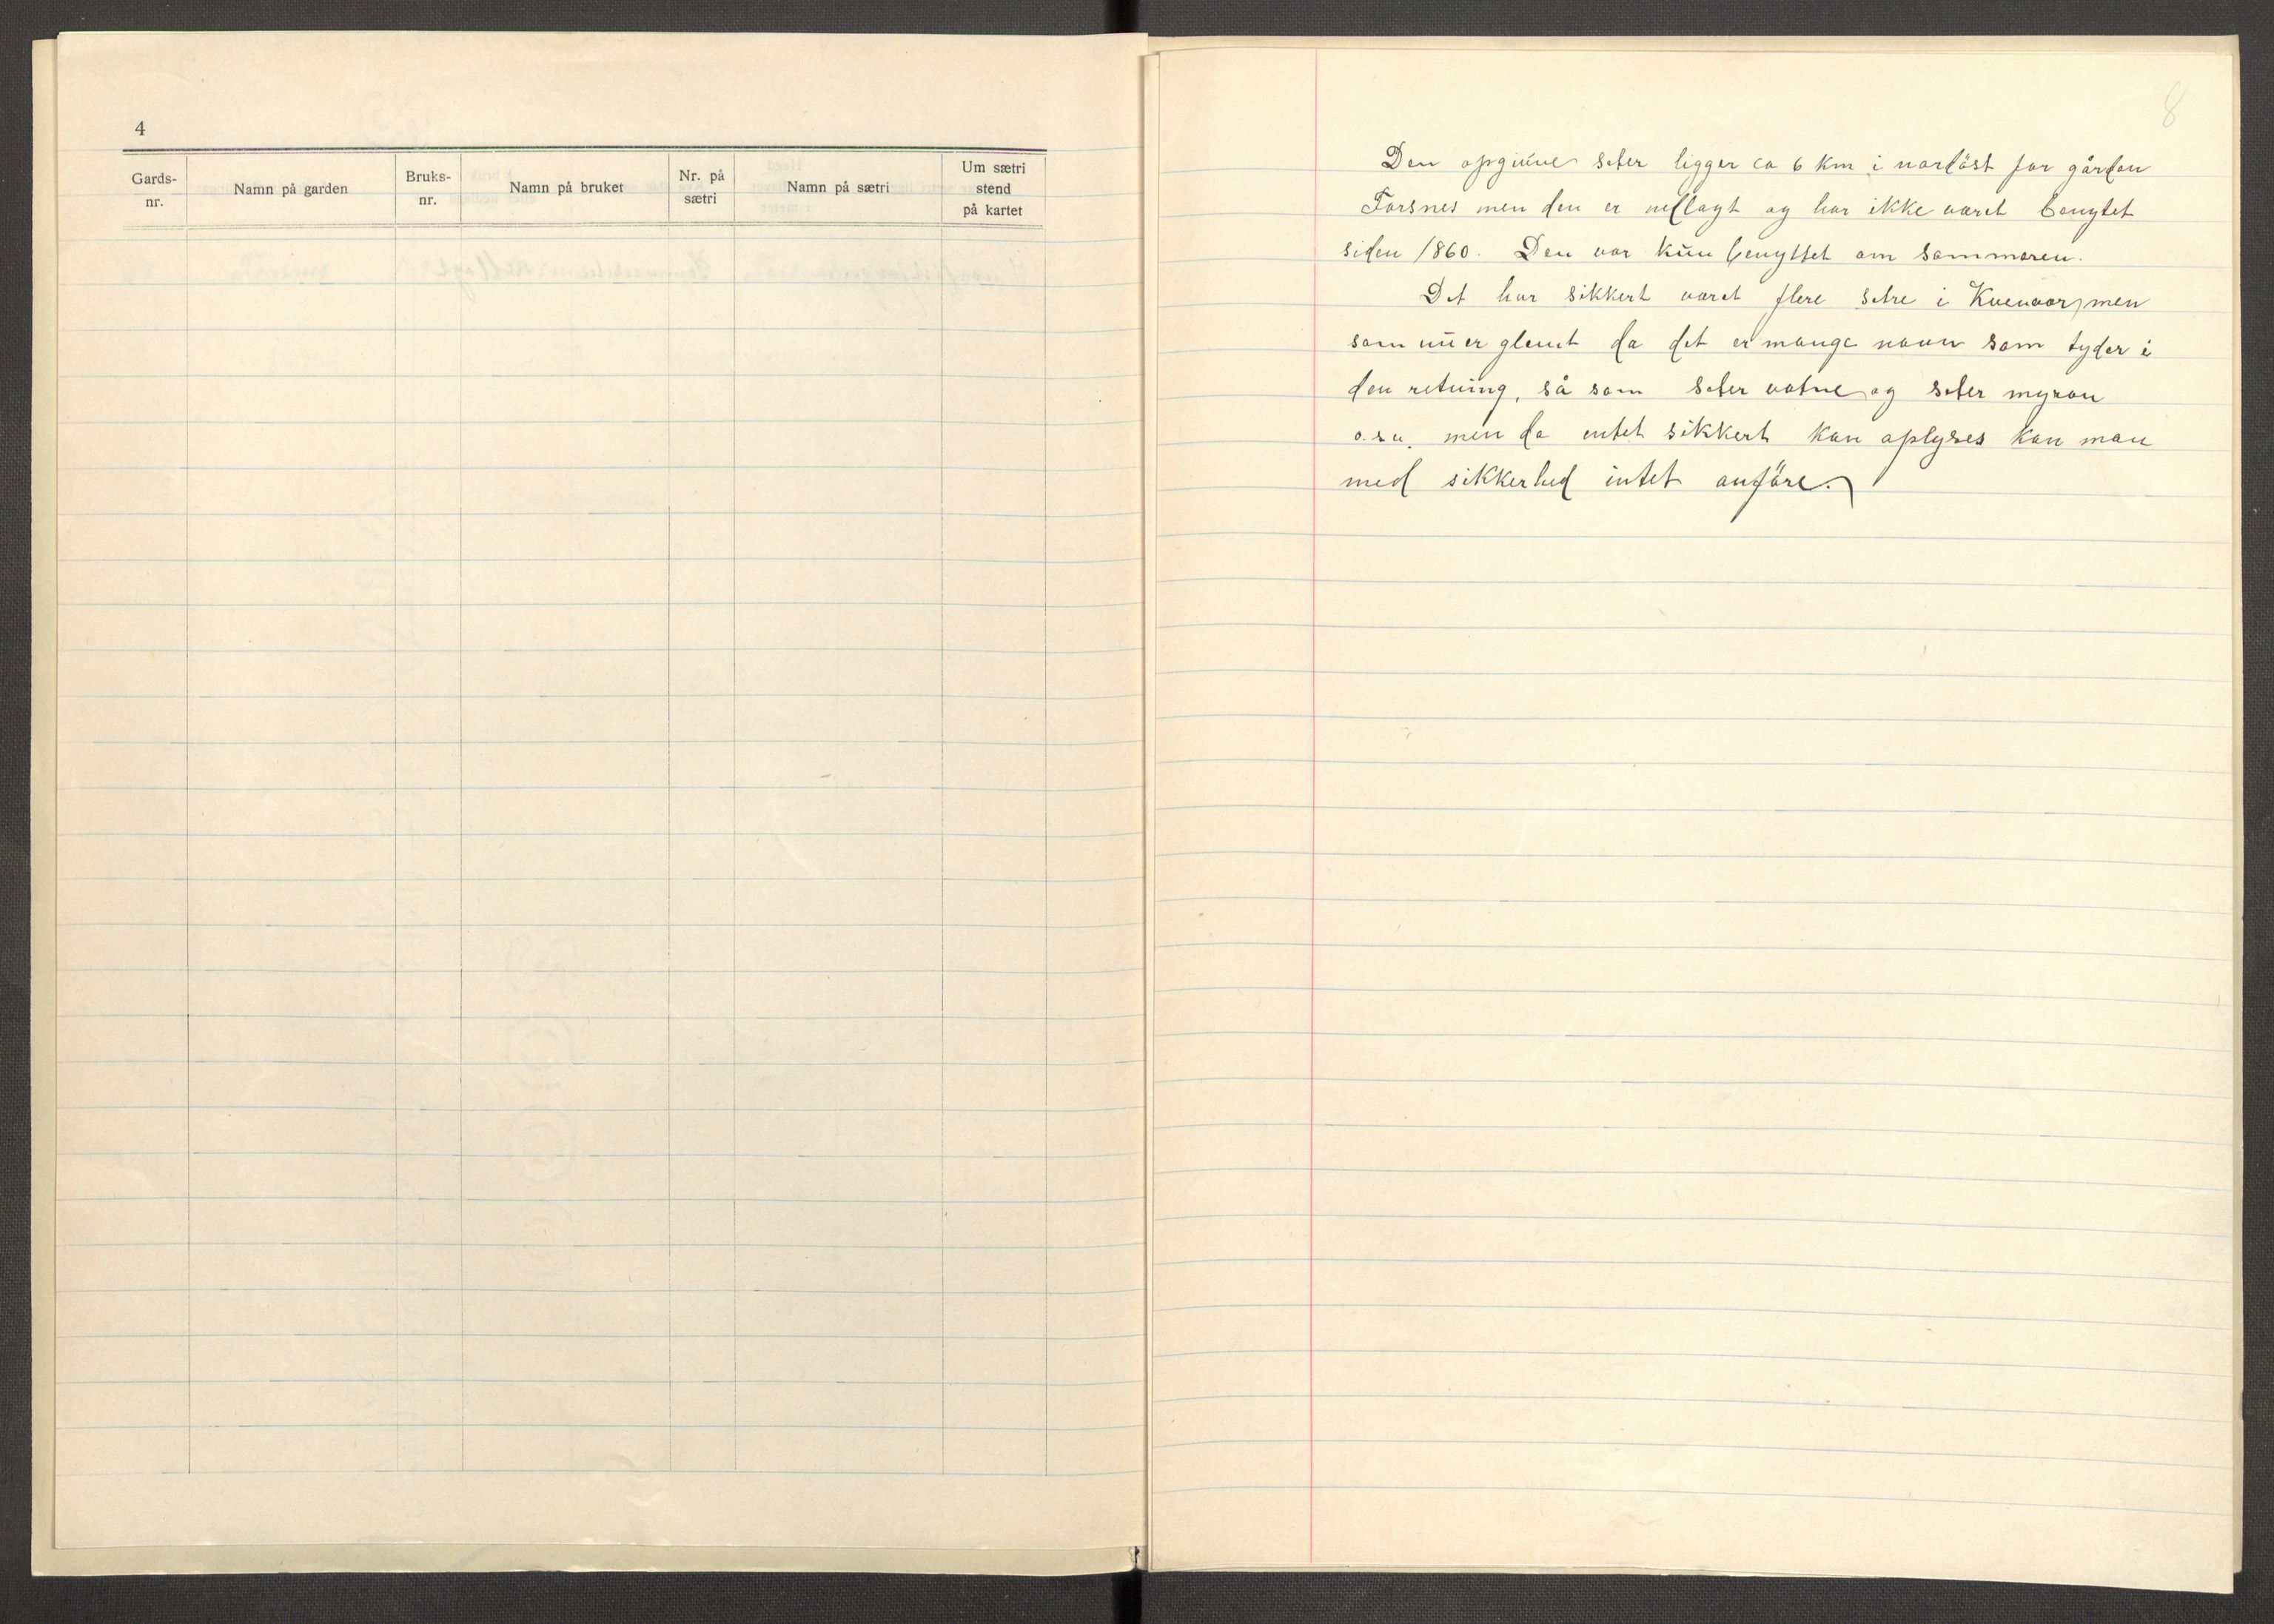 4
Gards-
nr.
Namn på garden
Bruks-
nr.
Namn på bruket
Nr. på
sætri
Namn på sætri
Um sætri
stend
på kartet
8
Den opgivne seter ligger ca 6 km i nordöst for gården
Forsnes men den er nedlagt og har ikke været benyttet
siden 1860. Den var kun benyttet om sommeren.
Det har sikkert været flere setre i Kvenvær, men
som nu er glemt da det er mange navn som tyder i
den retning, så som seter vatne og seter myran
o.s.v. men da intet sikkert kan oplyses kan man
med sikkerhed intet anföre.